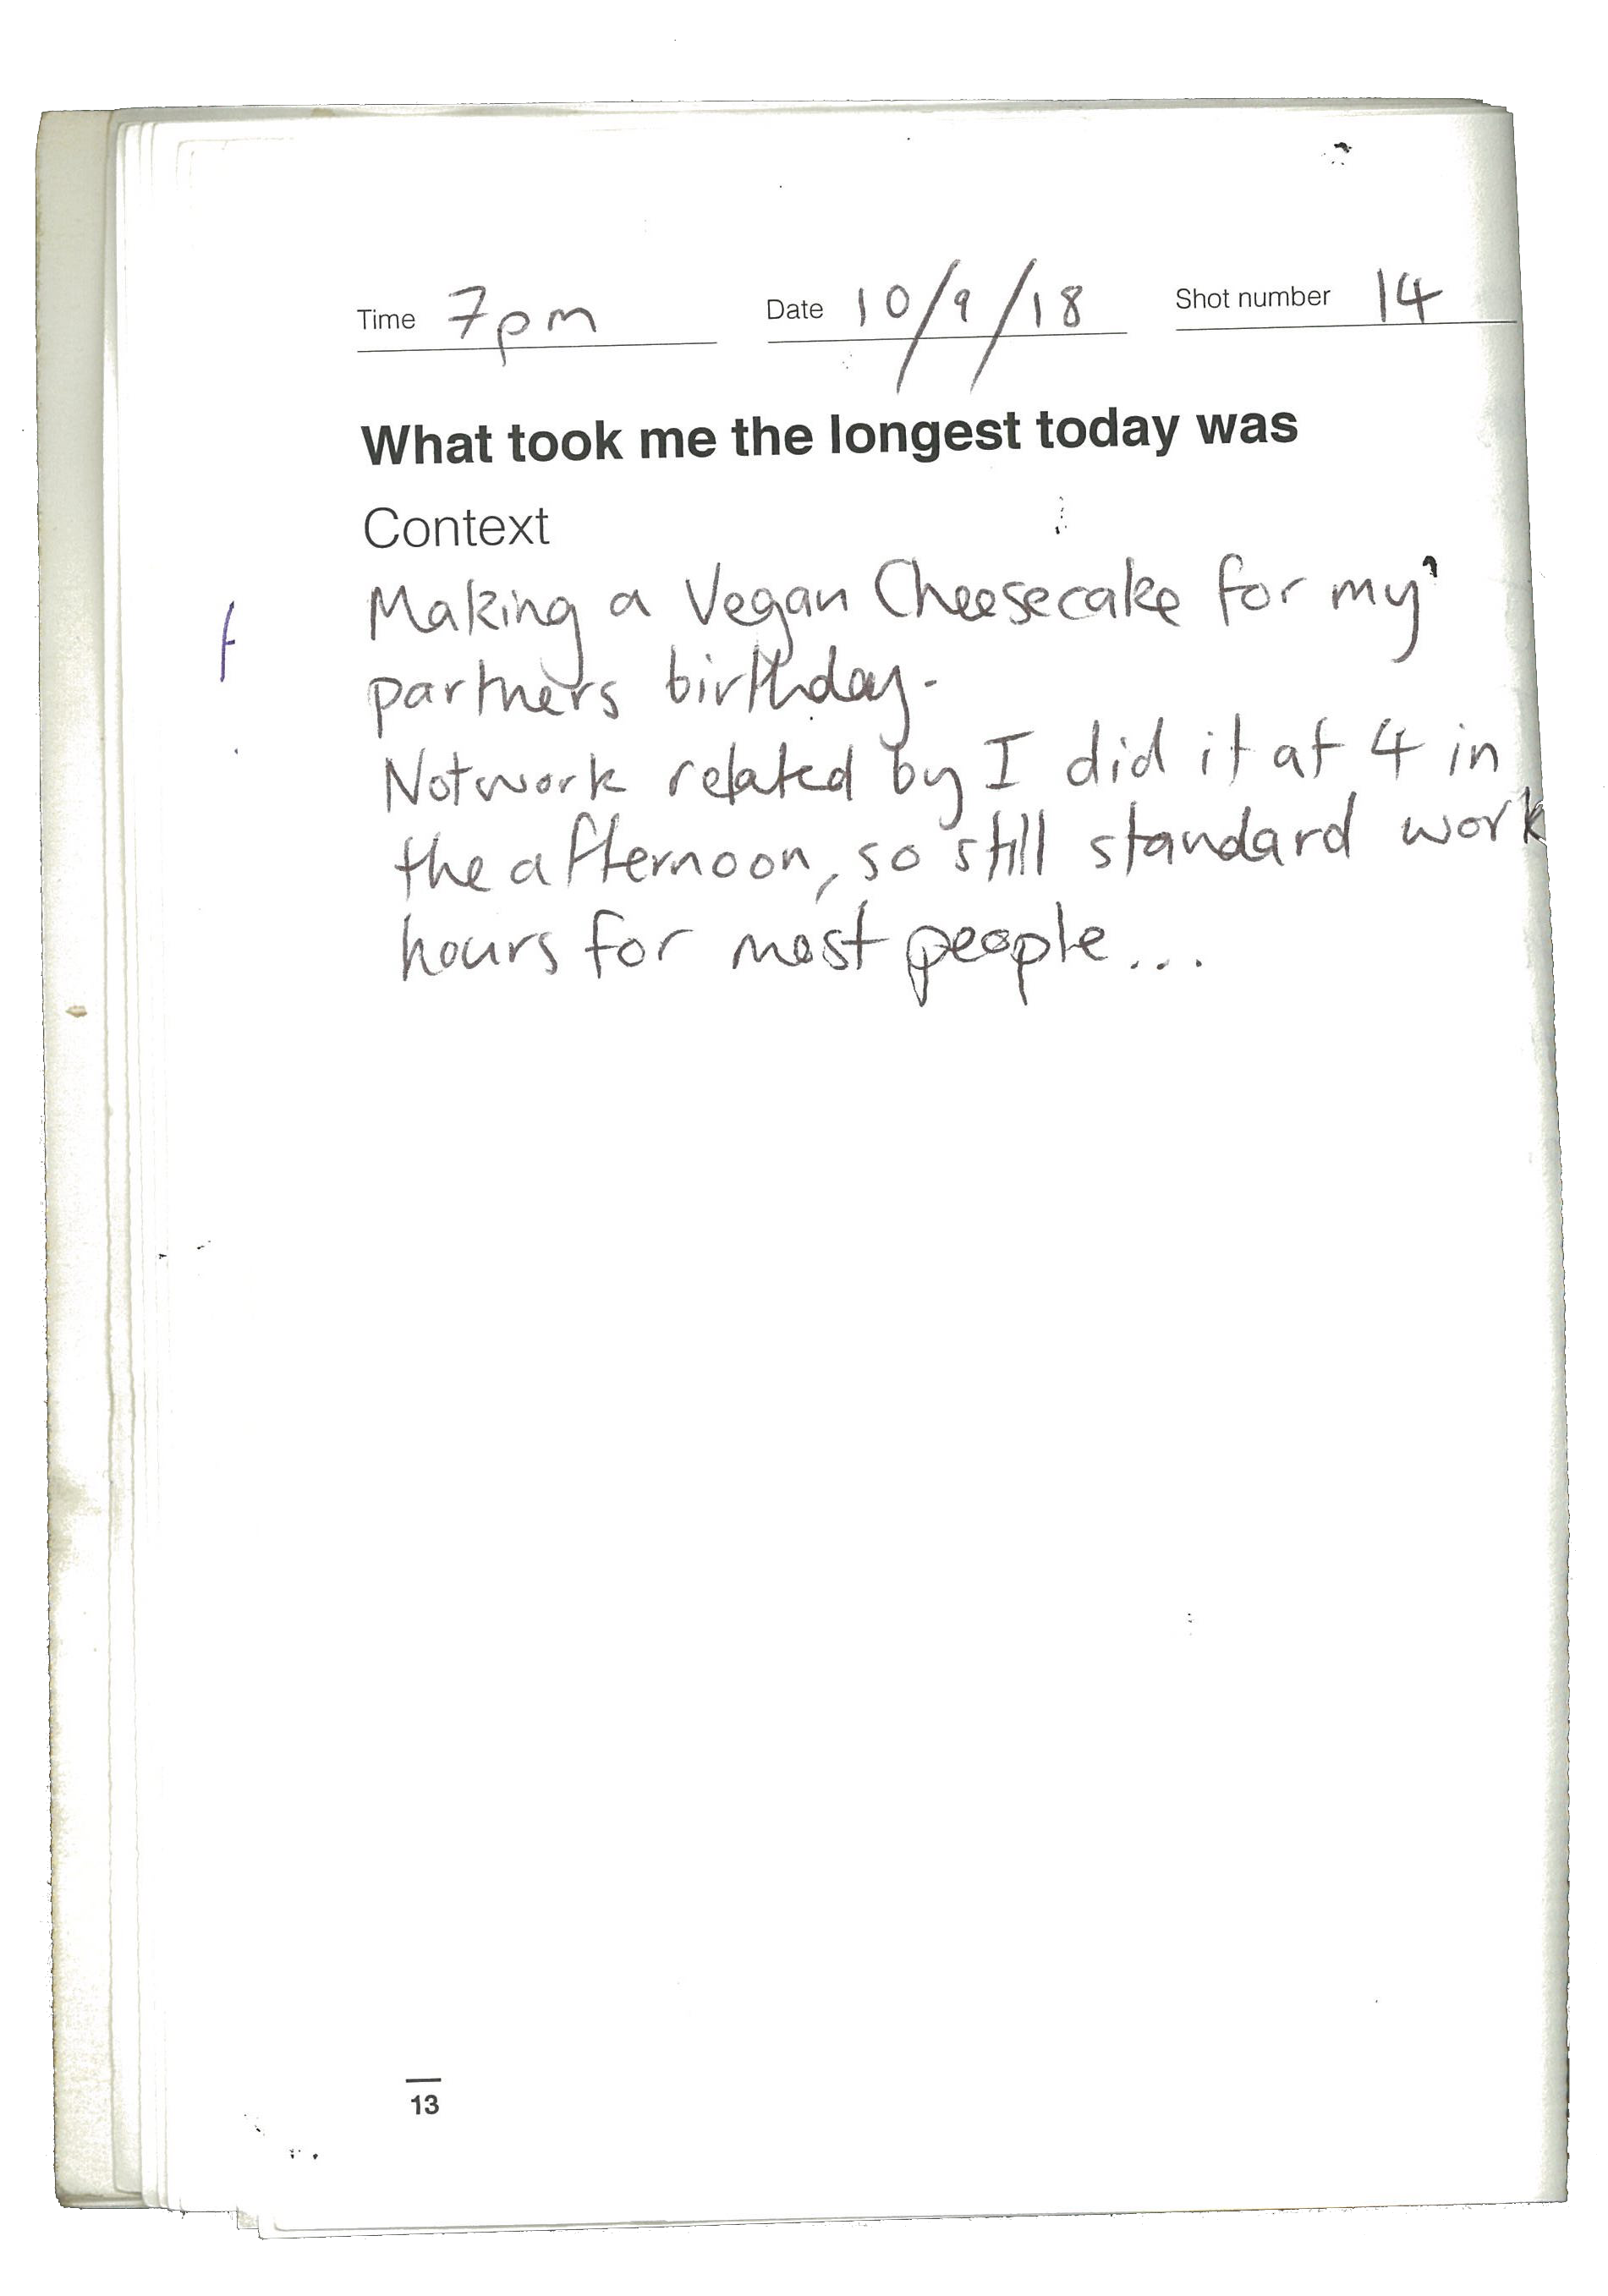 Time 7pm Date 10/9/18 Shot number 14
What took me the longest today was
Context
Making a Vegan Cheesecake for my
partners birthday.
Not work related by I did it at 4 in
the afternoon, so still standard work
hours for most people...
13